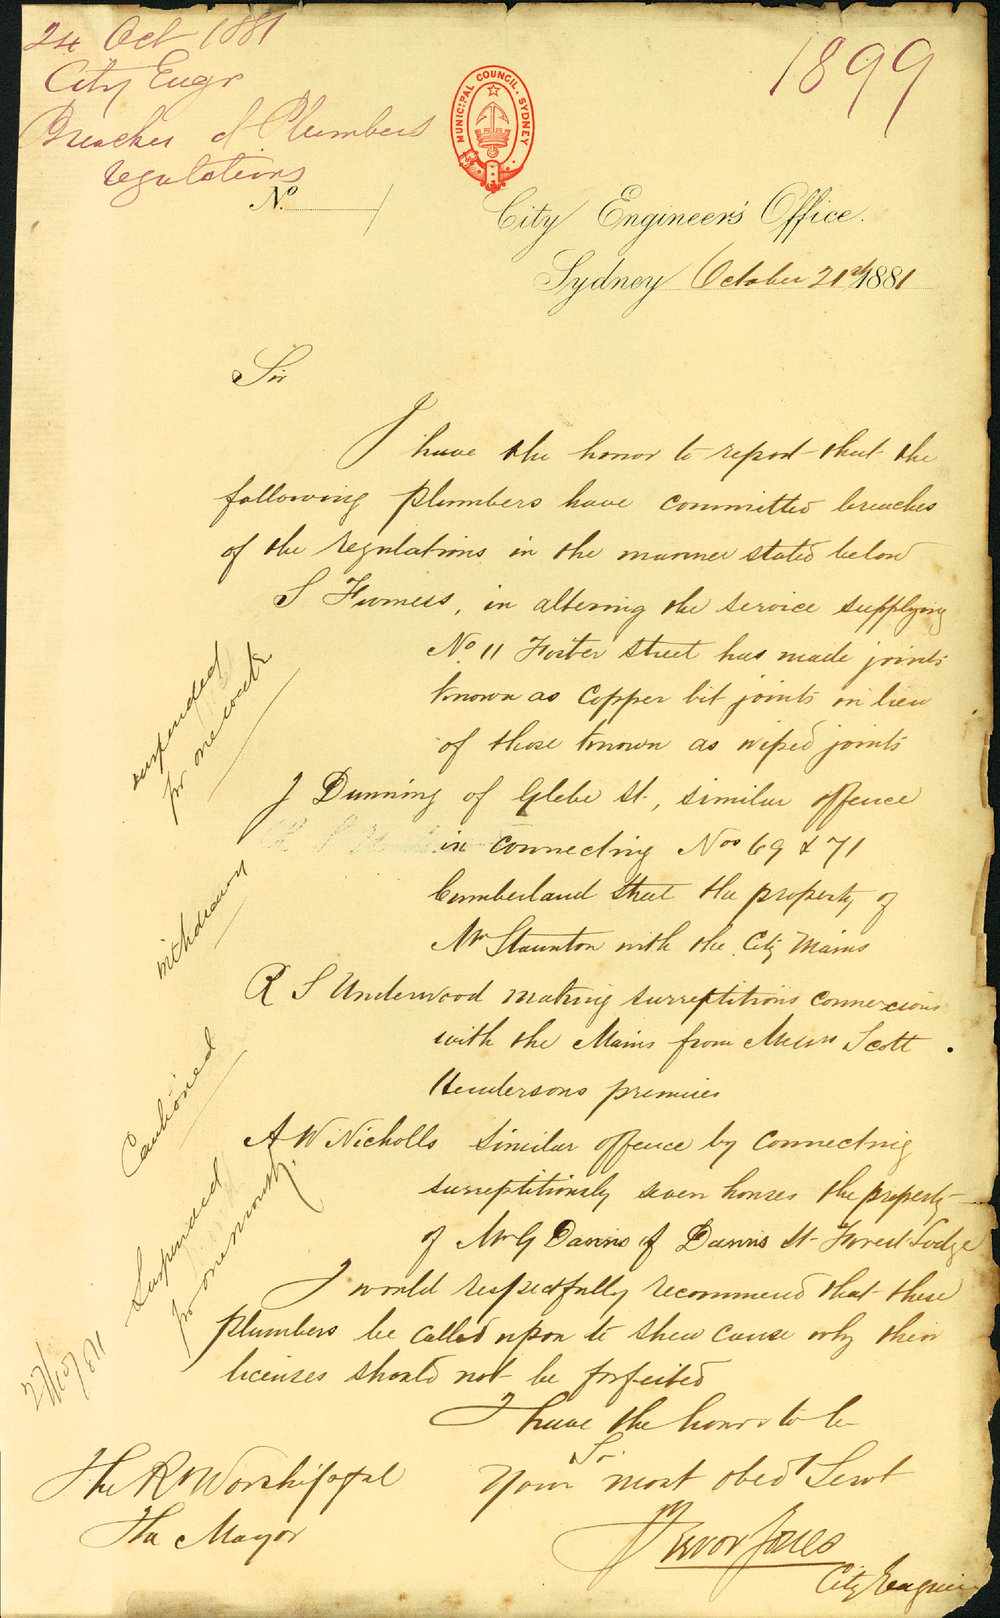 24 Oct 1881
City Engr
Breaches of Plumbers
regulations
1899
MUNICIPAL COUNCIL, SYDNEY
No.
City Engineer's Office.
Sydney October 21st 1881
Sir
I have the honor to report that the
following Plumbers have committed breaches
of the regulations in the manner stated below
S Furness, in altering the service supplying
No 11 Foster Street has made joints
known as Copper bit joints in lieu
of those known as wiped joints
suspended
for one week
J Dunning of Glebe St, similar offence
in connecting Nos 69 & 71
Cumberland Street the property of
Mr Staunton with the City Mains
withdrawn
R S Underwood making surreptitious connexions
with the Mains from Messrs Scott
Hendersons premises
Cautioned
A W Nicholls similar offence by connecting
surreptitiously seven houses the property
of Mr G Danns of Danns St Forest Lodge
Suspended
for one month.
I would respectfully recommend that these
Plumbers be called upon to shew cause why their
licenses should not be forfeited
I have the honor to be
Sir
Your most obedt Servt
Trevor Jones
City Engineer
The Rt Worshipful
The Mayor